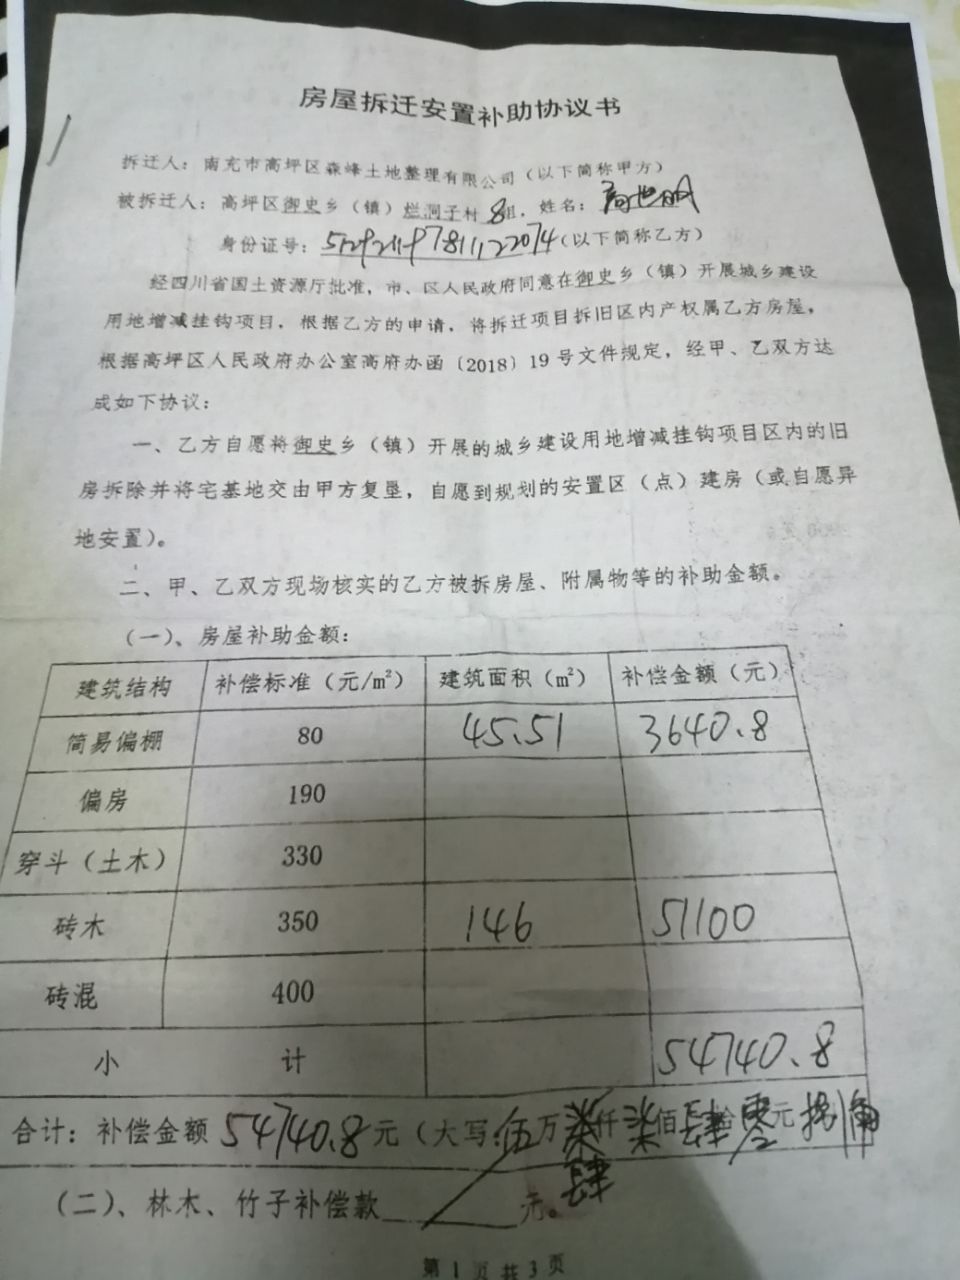 房屋拆迁安置补助协议书
拆迁人：南充市高坪区森峰土地整理有限公司（以下简称甲方）
被拆迁人：高坪区御史乡（镇）烂洞子村8组，姓名：
身份证号：（以下简称乙方）
经四川省国土资源厅批准，市、区人民政府同意在御史乡（镇）开展城乡建设
用地增减挂钩项目，根据乙方的申请，将拆迁项目拆旧区内产权属乙方房屋，
根据高坪区人民政府办公室高府办函〔2018〕19号文件规定，经甲、乙双方达
成如下协议：
一、乙方自愿将御史乡（镇）开展的城乡建设用地增减挂钩项目区内的旧
房拆除并将宅基地交由甲方复垦，自愿到规划的安置区（点）建房（或自愿异
地安置）。
二、甲、乙双方现场核实的乙方被拆房屋、附属物等的补助金额。
（一）、房屋补助金额：
建筑结构 补偿标准（元/m²） 建筑面积（m²） 补偿金额（元）
简易偏棚 80 45.51 3640.8
偏房 190
穿斗（土木） 330
砖木 350 146 51100
砖混 400
小 计 54740.8
合计：补偿金额 54740.8 元（大写：伍万仟柒佰肆拾零元捌角
肆
（二）、林木、竹子补偿款 元。
第 1 页 共 3 页